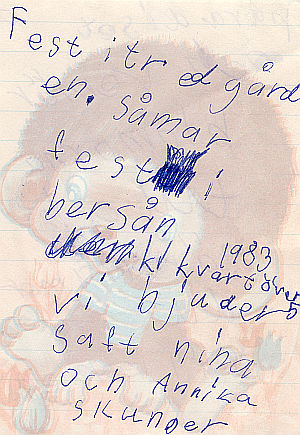 Fest i tr ed gård
en. såmar
fest i
bersån
1983
kl kvart över 5
vi bjuder
saft nina
och Annika
skunger